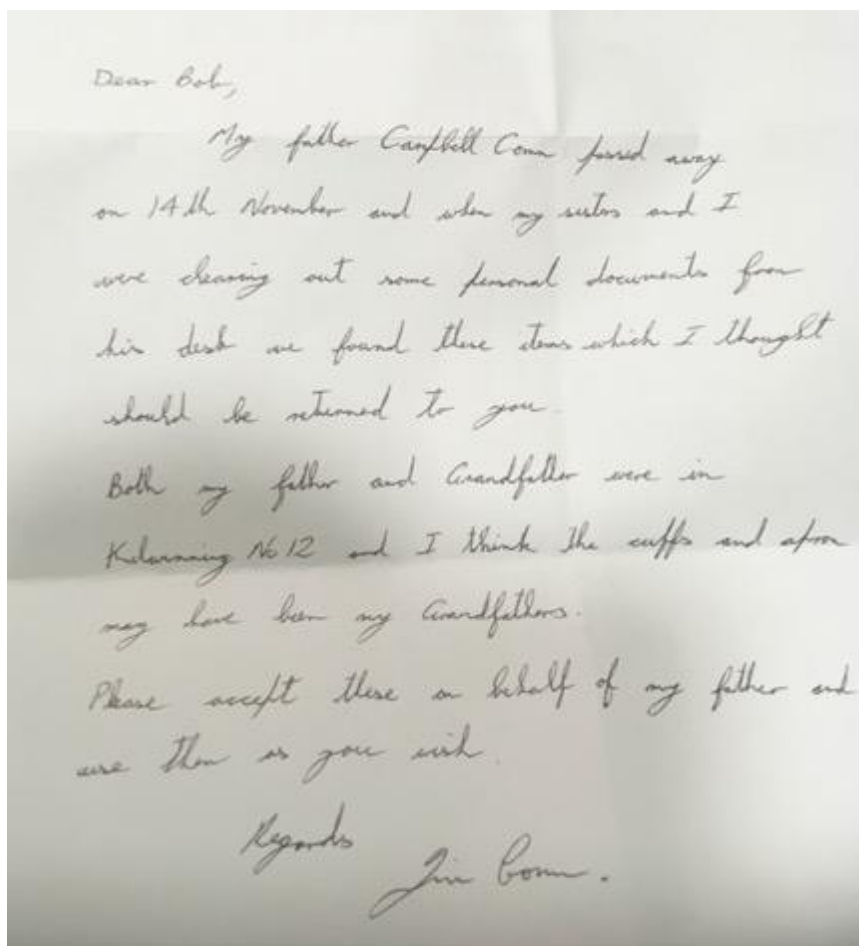 Dear Bob,
My father Campbell Conn passed away
on 14th November and when my sisters and I
were cleaning out some personal documents from
his desk we found these items which I thought
should be returned to you.
Both my father and Grandfather were in
Kilwinning No 12 and I think the cuffs and apron
may have been my Grandfathers.
Please accept these on behalf of my father and
use them as you wish.
Regards
Jim Conn.